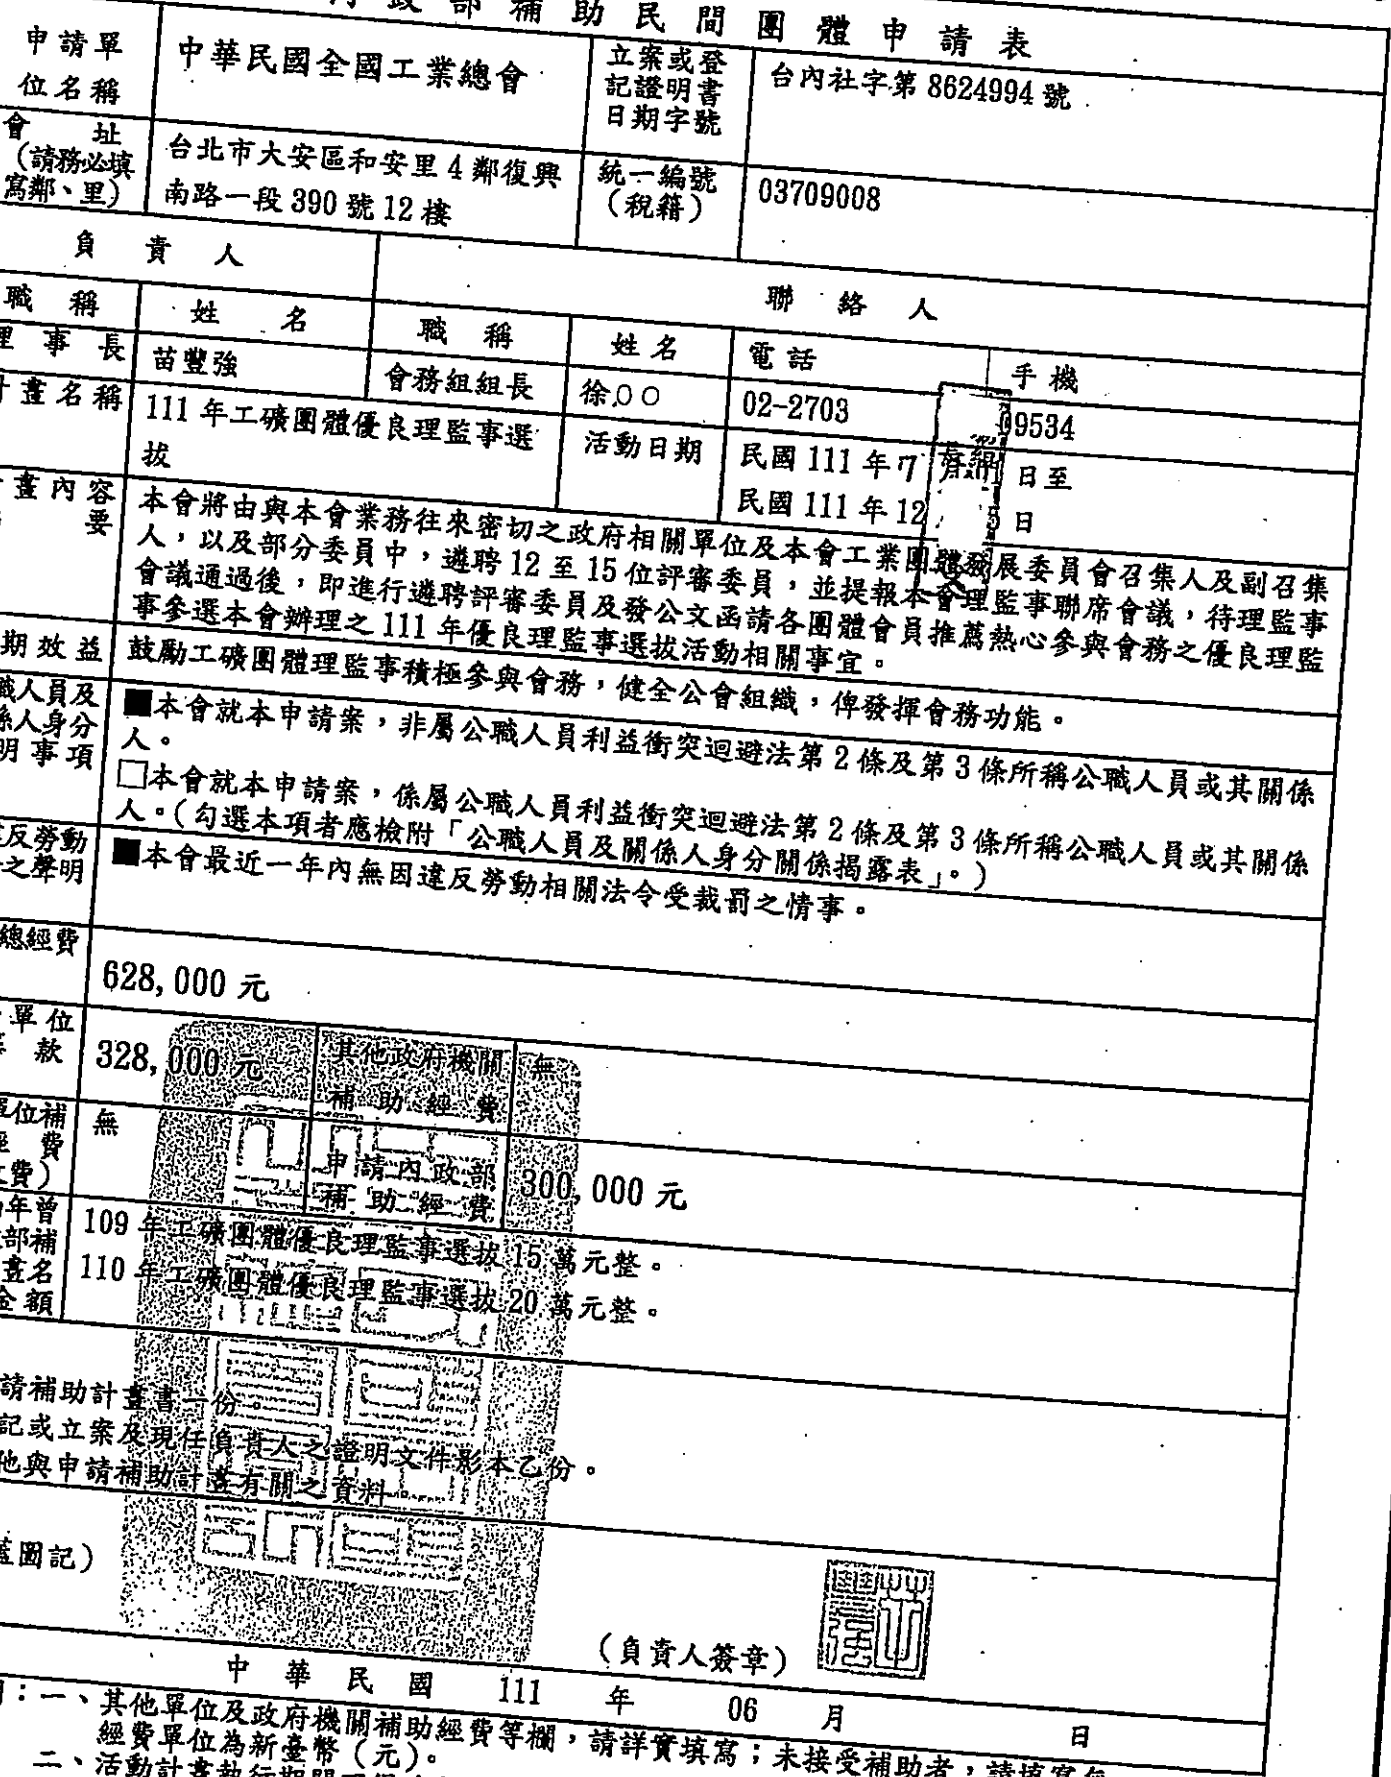 政部補助民間團體申請表
申請單位名稱
中華民國全國工業總會
立案或登記證明書日期字號
台內社字第 8624994 號
會址
(請務必填寫鄰、里)
台北市大安區和安里 4 鄰復興
南路一段 390 號 12 樓
統一編號
(稅籍)
03709008
負責人
聯絡人
職稱
姓名
職稱
姓名
電話
手機
理事長
苗豐強
會務組組長
徐○○
02-2703
09534
計畫名稱
111 年工礦團體優良理監事選
拔
活動日期
民國 111 年 7 月 日至
民國 111 年 12 日
畫內容
要
本會將由與本會業務往來密切之政府相關單位及本會工業團體發展委員會召集人及副召集
人,以及部分委員中,遴聘 12 至 15 位評審委員,並提報本會理監事聯席會議,待理監事
會議通過後,即進行遴聘評審委員及發公文函請各團體會員推薦熱心參與會務之優良理監
事參選本會辦理之 111 年優良理監事選拔活動相關事宜。
期效益
鼓勵工礦團體理監事積極參與會務,健全公會組織,俾發揮會務功能。
職人員及
係人身分
明事項
■本會就本申請案,非屬公職人員利益衝突迴避法第 2 條及第 3 條所稱公職人員或其關係
人。
□本會就本申請案,係屬公職人員利益衝突迴避法第 2 條及第 3 條所稱公職人員或其關係
人。(勾選本項者應檢附「公職人員及關係人身分關係揭露表」。)
反勞動
之聲明
■本會最近一年內無因違反勞動相關法令受裁罰之情事。
總經費
628,000 元
單位
款
328,000 元
其他政府機關
補助經費
無
單位補
費
費)
無
申請內政部
補助經費
300,000 元
年曾
部補
畫名
金額
109 年工礦團體優良理監事選拔 15 萬元整。
110 年工礦團體優良理監事選拔 20 萬元整。
請補助計畫書一份。
記或立案及現任負責人之證明文件影本乙份。
他與申請補助計畫有關之資料。
蓋圖記)
(負責人簽章)
中華民國 111 年 06 月 日
:一、其他單位及政府機關補助經費等欄,請詳實填寫;未接受補助者,請填寫
經費單位為新臺幣(元)。
二、活動計畫執行期間